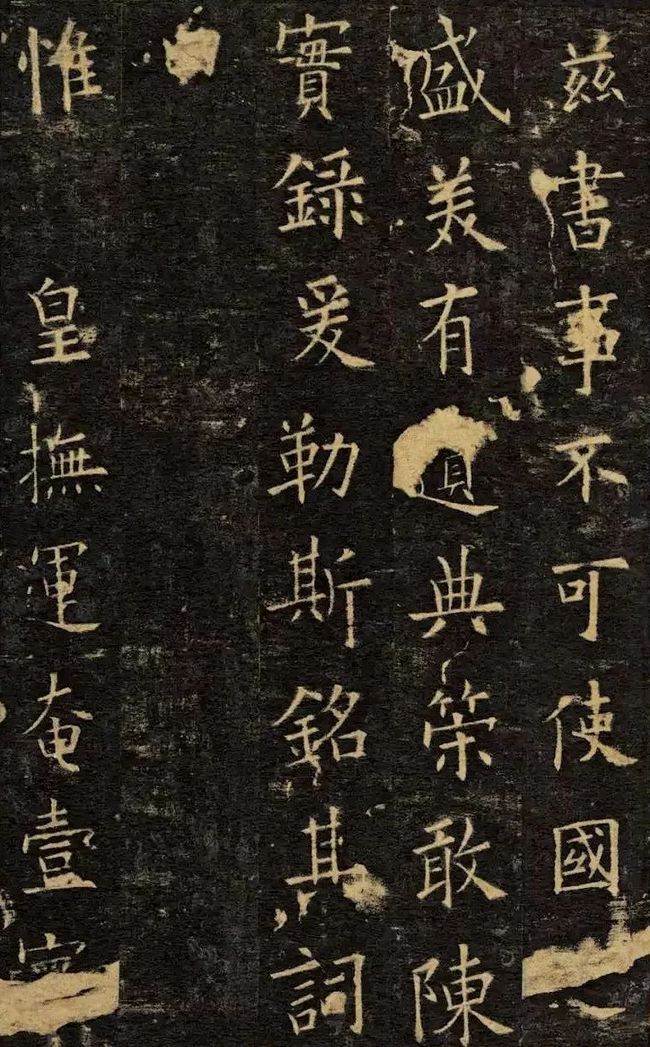 兹書事不可使國
盛美有遺典策敢陳
實録爰勒斯銘其詞
惟皇撫運奄壹寰